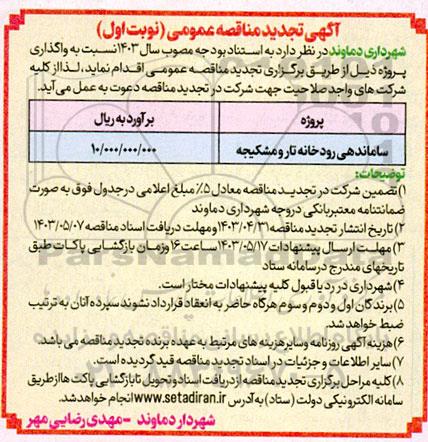 آگهی تجدید مناقصه عمومی (نوبت اول)
شهرداری دماوند در نظر دارد به استناد بودجه مصوب سال ۱۴۰۳ نسبت به واگذاری
پروژه ذیل از طریق برگزاری تجدید مناقصه عمومی اقدام نماید، لذا از کلیه
شرکت های واجد صلاحیت جهت شرکت در تجدید مناقصه دعوت به عمل می آید.
پروژه برآورد به ریال
ساماندهی رودخانه تار و مشکیجه ۱۰/۰۰۰/۰۰۰/۰۰۰
توضیحات:
۱) تضمین شرکت در تجدید مناقصه معادل ۵٪ مبلغ اعلامی در جدول فوق به صورت
ضمانتنامه معتبر بانکی در وجه شهرداری دماوند
۲) تاریخ انتشار تجدید مناقصه ۱۴۰۳/۰۴/۳۱ و مهلت دریافت اسناد مناقصه ۱۴۰۳/۰۵/۰۷
۳) مهلت ارسال پیشنهادات ۱۴۰۳/۰۵/۱۷ ساعت ۱۶ و زمان بازگشایی پاکات طبق
تاریخهای مندرج در سامانه ستاد
۴) شهرداری در رد یا قبول کلیه پیشنهادات مختار است.
۵) برندگان اول و دوم و سوم هرگاه حاضر به انعقاد قرارداد نشوند سپرده آنان به ترتیب
ضبط خواهد شد.
۶) هزینه آگهی روزنامه و سایر هزینه های مرتبط به عهده برنده تجدید مناقصه می باشد.
۷) سایر اطلاعات و جزئیات در اسناد تجدید مناقصه قید گردیده است.
۸) کلیه مراحل برگزاری تجدید مناقصه از دریافت اسناد و تحویل تا بازگشایی پاکت ها از طریق
سامانه الکترونیکی دولت (ستاد) به آدرس www.setadiran.ir انجام خواهد شد.
شهردار دماوند - مهدی رضایی مهر